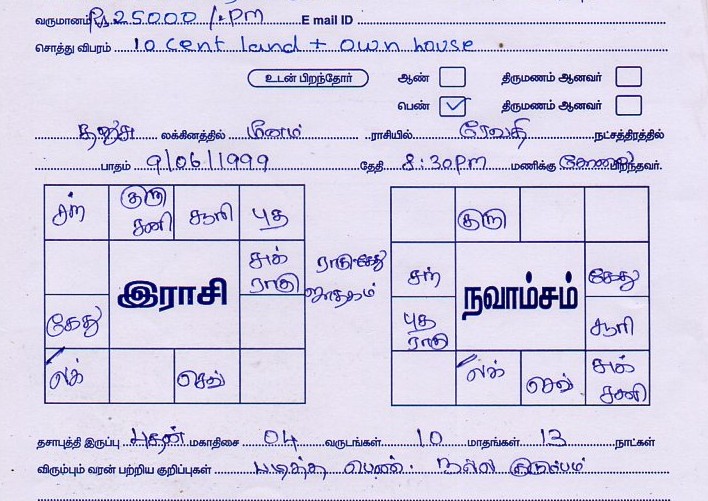 வருமானம் Rs.25000/.Pm E mail ID
சொத்து விபரம் 10 cent land + own house
உடன் பிறந்தோர் ஆண் திருமணம் ஆனவர்
பெண் திருமணம் ஆனவர்
தனுசு லக்கினத்தில் மீனம் ராசியில் ரேவதி நட்சத்திரத்தில்
பாதம் 9/06/1999 தேதி 8:30pm மணிக்கு பிறந்தவர்.
சந் குரு சனி சூரி புத
சுக் ராகு
கேது
லக் செவ்
இராசி
ராகு-கேது
ஜாதகம்
குரு
சந் கேது
புத ராகு சூரி
லக் செவ் சுக் சனி
நவாம்சம்
தசாபுத்தி இருப்பு புதன் மகாதிசை 04 வருடங்கள் 10 மாதங்கள் 13 நாட்கள்
விரும்பும் வரன் பற்றிய குறிப்புகள் படித்த பெண். நல்ல குடும்பம்